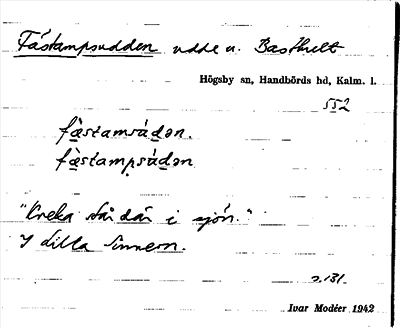 Fästampsudden udde u. Basthult
Högsby sn, Handbörds hd, Kalm. l.
552
fästamsúdən.
fästampsúdən
"Kreka står där i sjön."
I Lilla Sinnern.
s. 131.
Ivar Modéer 1942